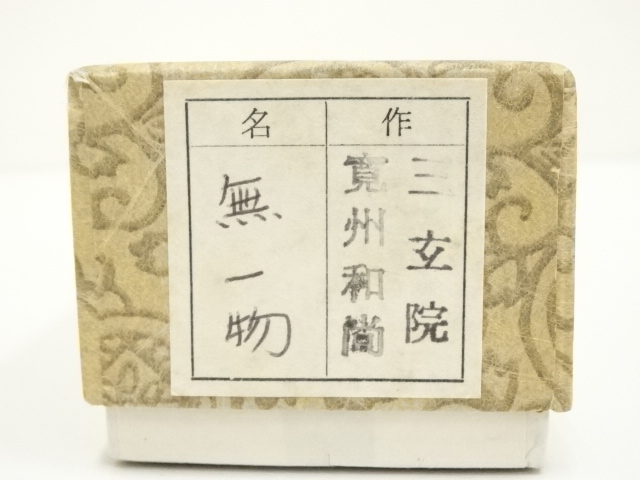 作
三玄院
寛州和尚
名
無一物